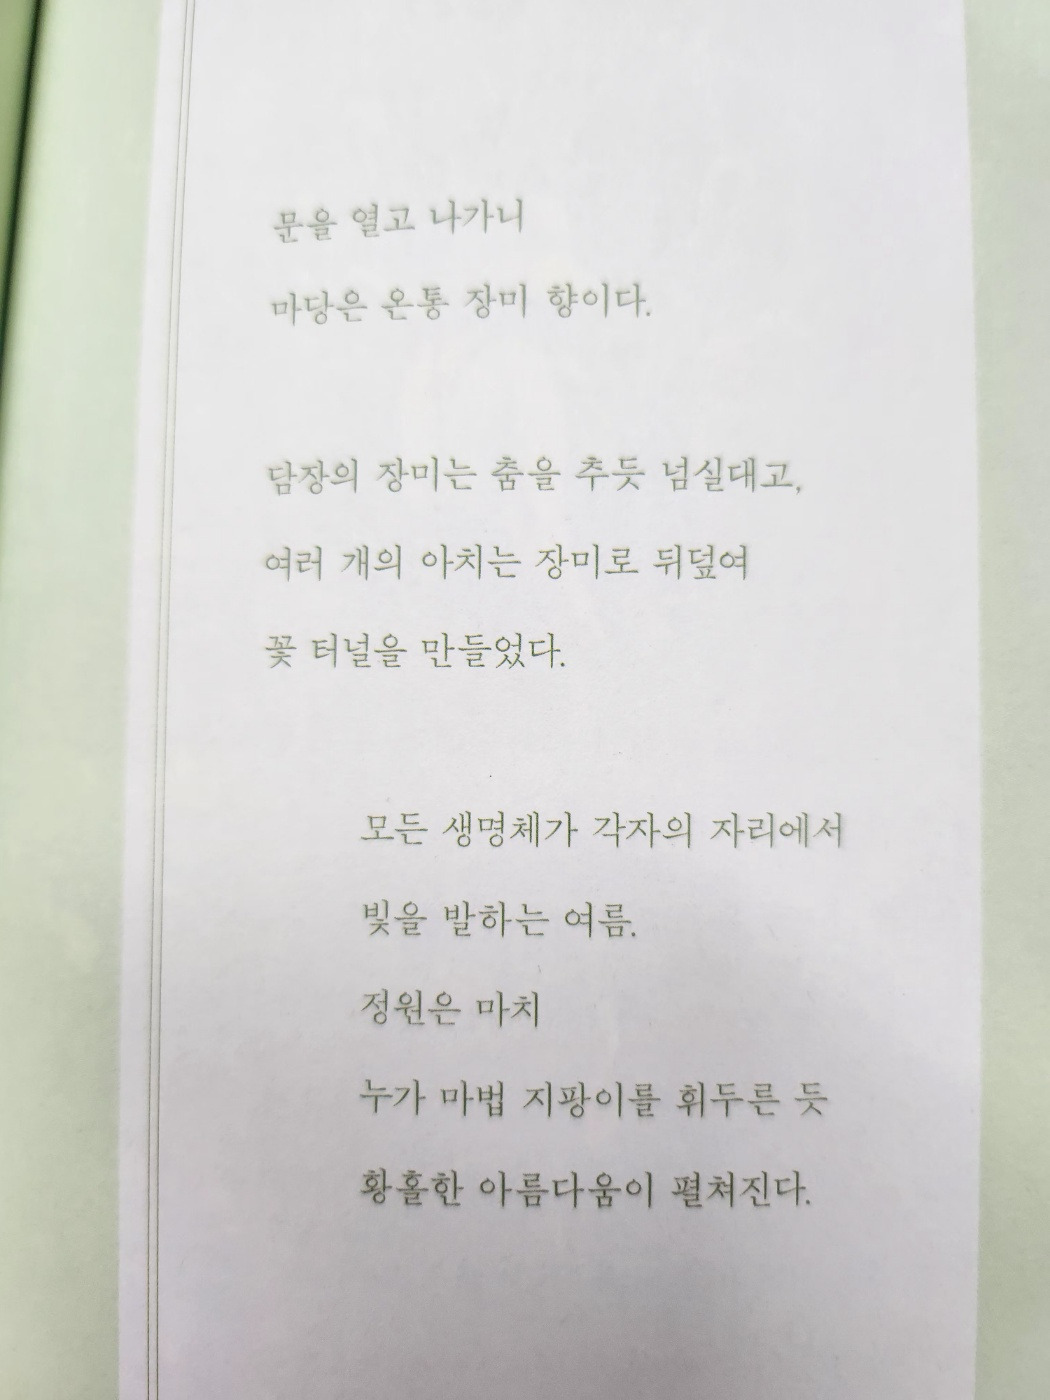 문을 열고 나가니
마당은 온통 장미 향이다.
담장의 장미는 춤을 추듯 넘실대고,
여러 개의 아치는 장미로 뒤덮여
꽃 터널을 만들었다.
모든 생명체가 각자의 자리에서
빛을 발하는 여름.
정원은 마치
누가 마법 지팡이를 휘두른 듯
황홀한 아름다움이 펼쳐진다.